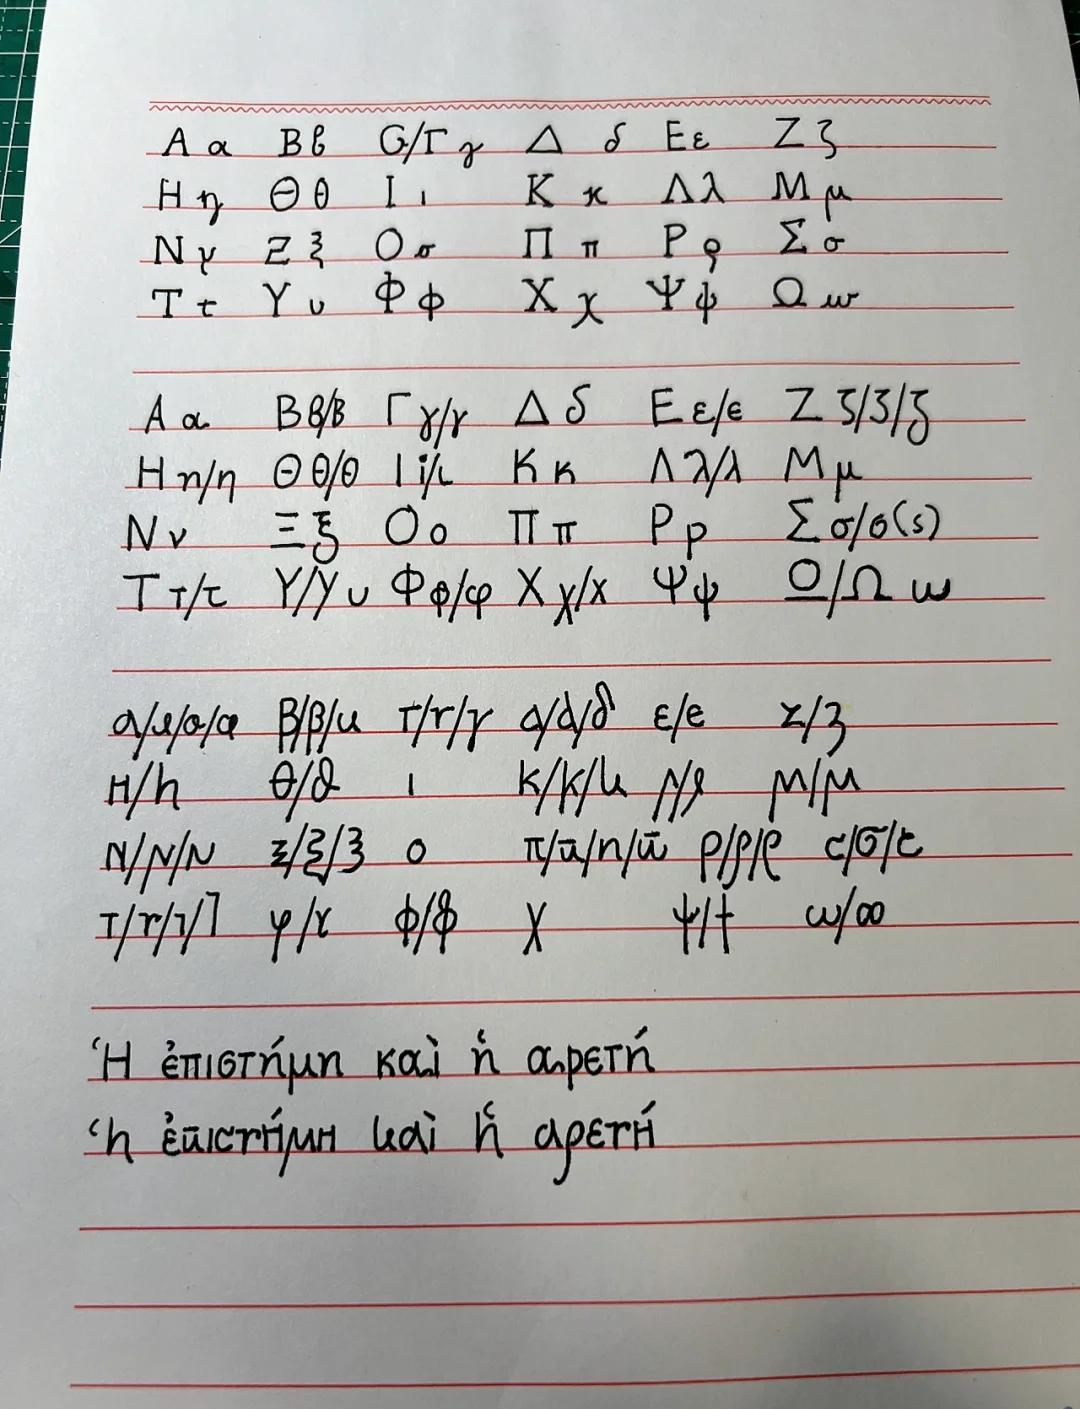 Α α Β β G/Γ γ Δ δ Ε ε Ζ ζ
Η η Θ θ Ι ι Κ κ Λ λ Μ μ
Ν ν Ξ ξ Ο σ Π π Ρ ρ Σ σ
Τ τ Υ υ Φ φ Χ χ Ψ ψ Ω ω
Α α Β β/β Γ γ/γ Δ δ Ε ε/ϵ Ζ ζ/ζ/ζ
Η η/η Θ θ/θ Ι i/ι Κ κ Λ λ/λ Μ μ
Ν ν Ξ ξ Ο ο Π π Ρ ρ Σ σ/σ(s)
Τ τ/τ Υ/Υ υ Φ φ/φ Χ χ/χ Ψ ψ Ο/Ω ω
α/α/α/α β/β/u τ/r/γ α/d/δ ε/e z/ζ
H/h θ/ϑ ι κ/κ/u λ/λ μ/μ
N/N/N ξ/ξ/ξ ο π/ϖ/n/ϖ ρ/ρ/ρ c/σ/c
τ/r/τ/7 φ/γ φ/φ χ ψ/† ω/∞
Ἡ ἐπιστήμη καὶ ἡ αρετή
ἡ ἐπιστήμη καὶ ἡ αρετή